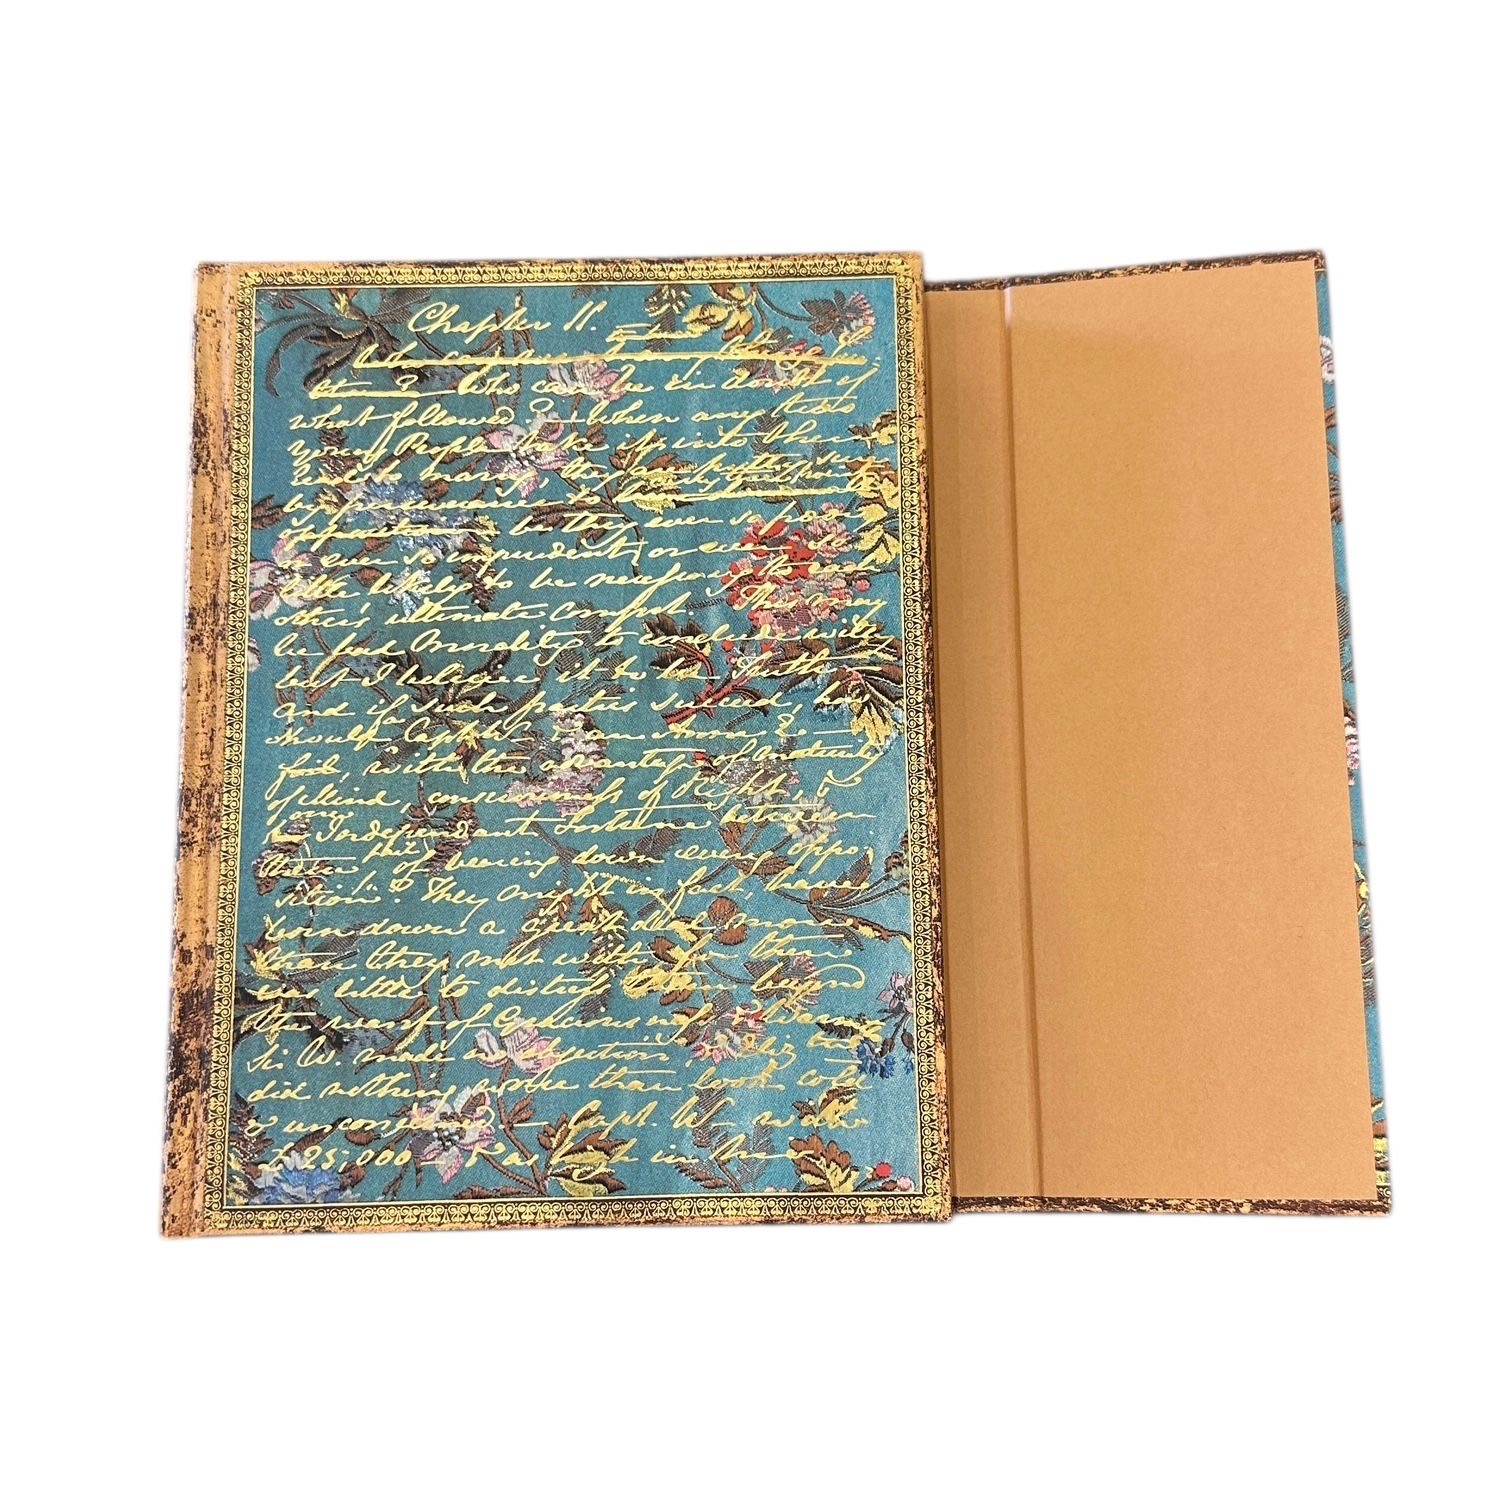 Chapter 11.
Who can be in doubt of
what followed? When any two
Young People take it into their
heads to marry, they are pretty sure
by perseverance to carry their point
be they ever so poor
or ever so imprudent, or ever so
little likely to be necessary to each
other's ultimate comfort. This may
be bad Morality to conclude with,
but I believe it to be Truth —
and if such parties succeed, how
should a Capt W— & an Anne E —
fail, with the advantage of maturity
of Mind, consciousness of Right, &
one Independant Fortune between
them, of bearing down every oppo-
sition? They might in fact, have
born down a great deal more
than they met with, for there
was little to distress them beyond
the want of Graciousness & Warmth.
Sir W. made no objection, & Eliz:
did nothing worse than look cold
& unconcerned. — Capt. W— with
£25,000 — & as high in his